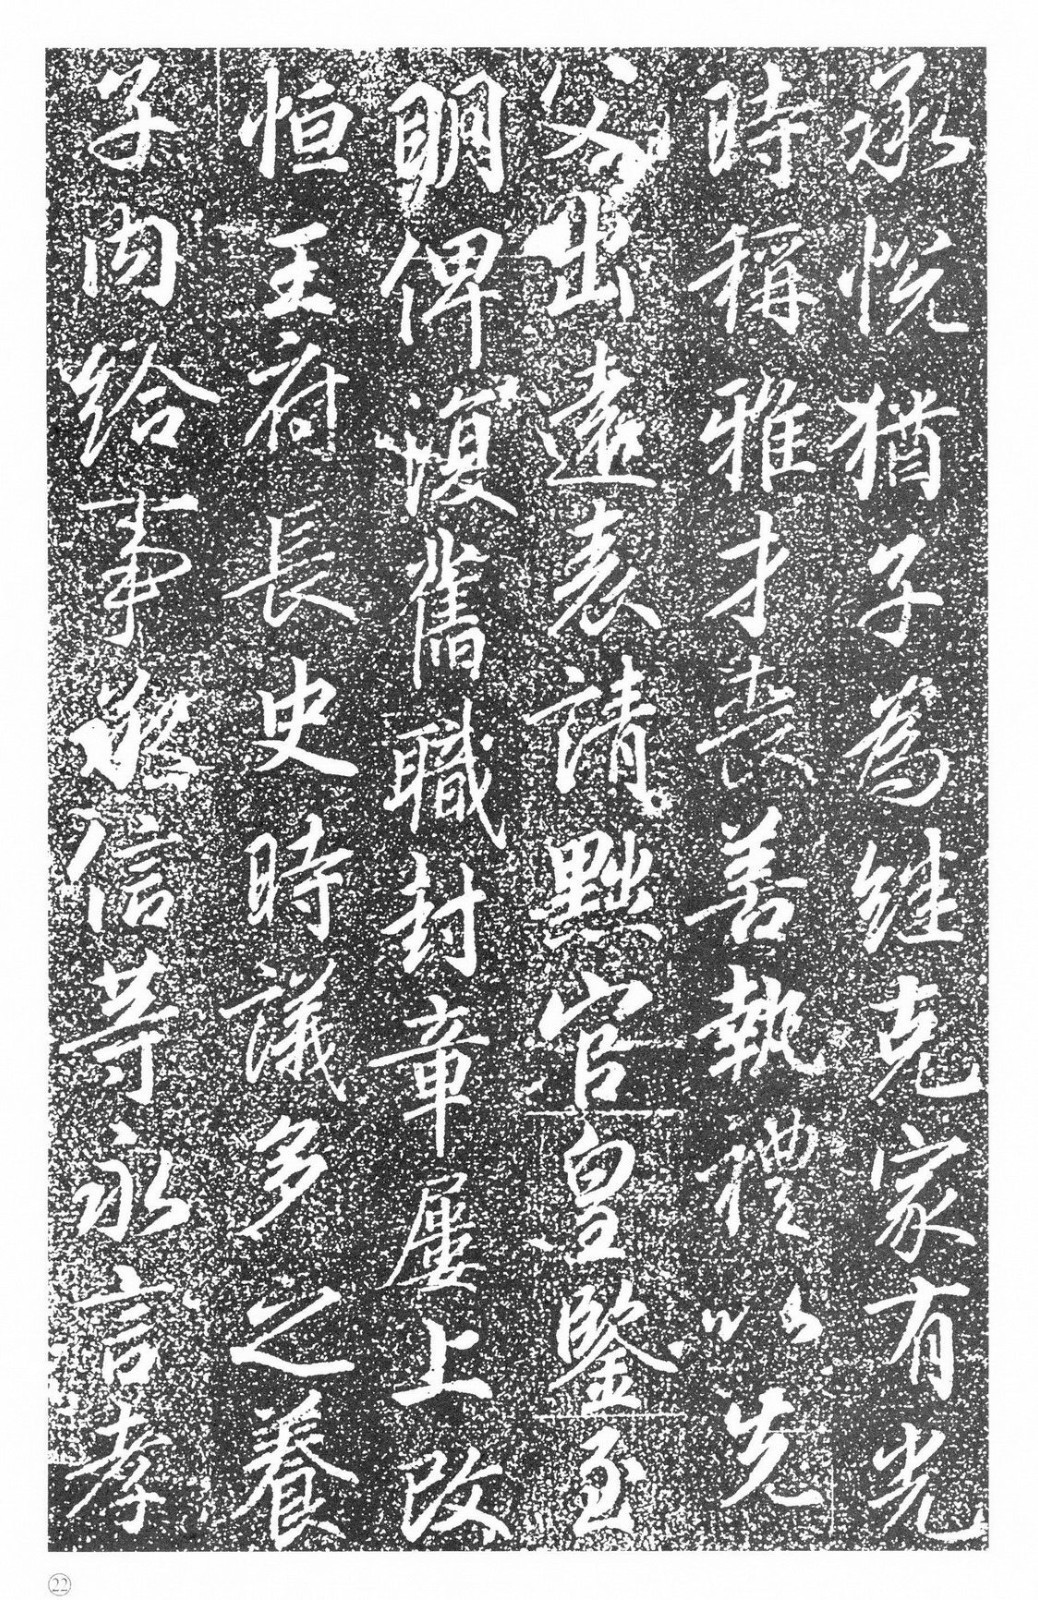 承悅猶子為継克家有光
時稱雅才喪善執禮以先
父出遠表請黜官皇鑒至
明俾復舊職封章屢上改
恒王府長史時議多之養
子內給事信等永言孝
22